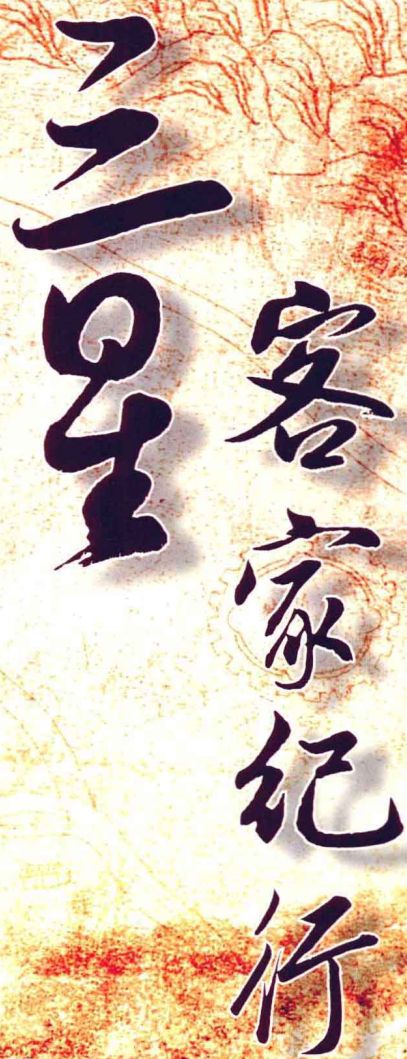 三星
客家纪行